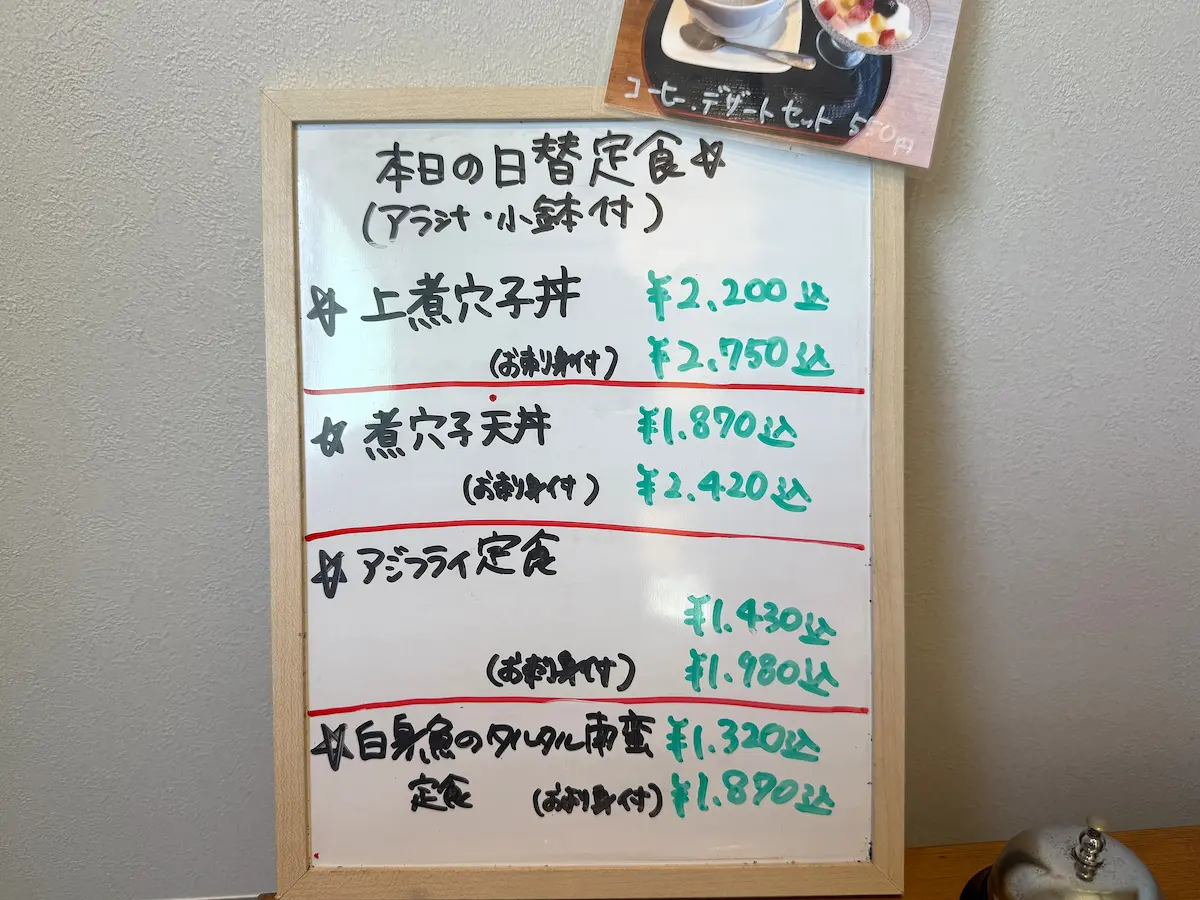 コーヒー・デザートセット 550円
本日の日替定食☆
(アラジナ・小鉢付)
☆ 上煮穴子丼 ¥2,200込
(お刺り身付) ¥2,750込
☆ 煮穴子天丼 ¥1,870込
(お刺り身付) ¥2,420込
☆ アジフライ定食
¥1,430込
(お刺り身付) ¥1,980込
☆白身魚のタルタル南蛮 ¥1,320込
定食 (お刺り身付) ¥1,870込